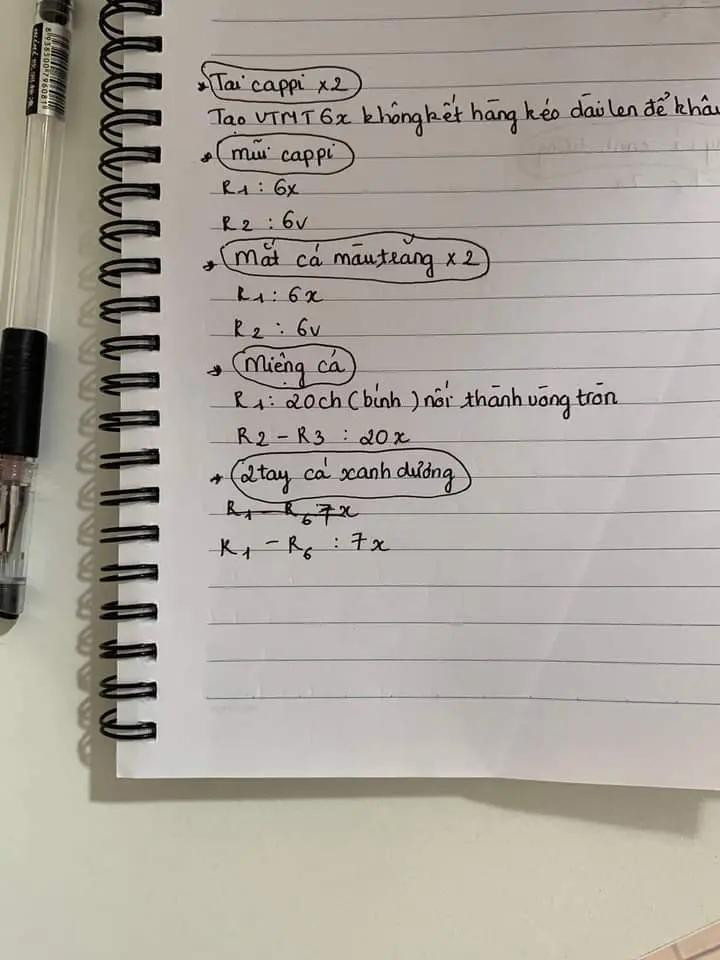 Tai cappi x2
Tạo VTMT 6x không kết hàng kéo dài len để khâu
mũi cappi
R1 : 6x
R2 : 6v
Mắt cá màu trắng x 2
R1 : 6x
R2 : 6v
Miệng cá
R1 : 20ch (bính) nối thành vòng tròn
R2 - R3 : 20x
2 tay cá xanh dương
R1 - R6 7x
R1 - R6 : 7x